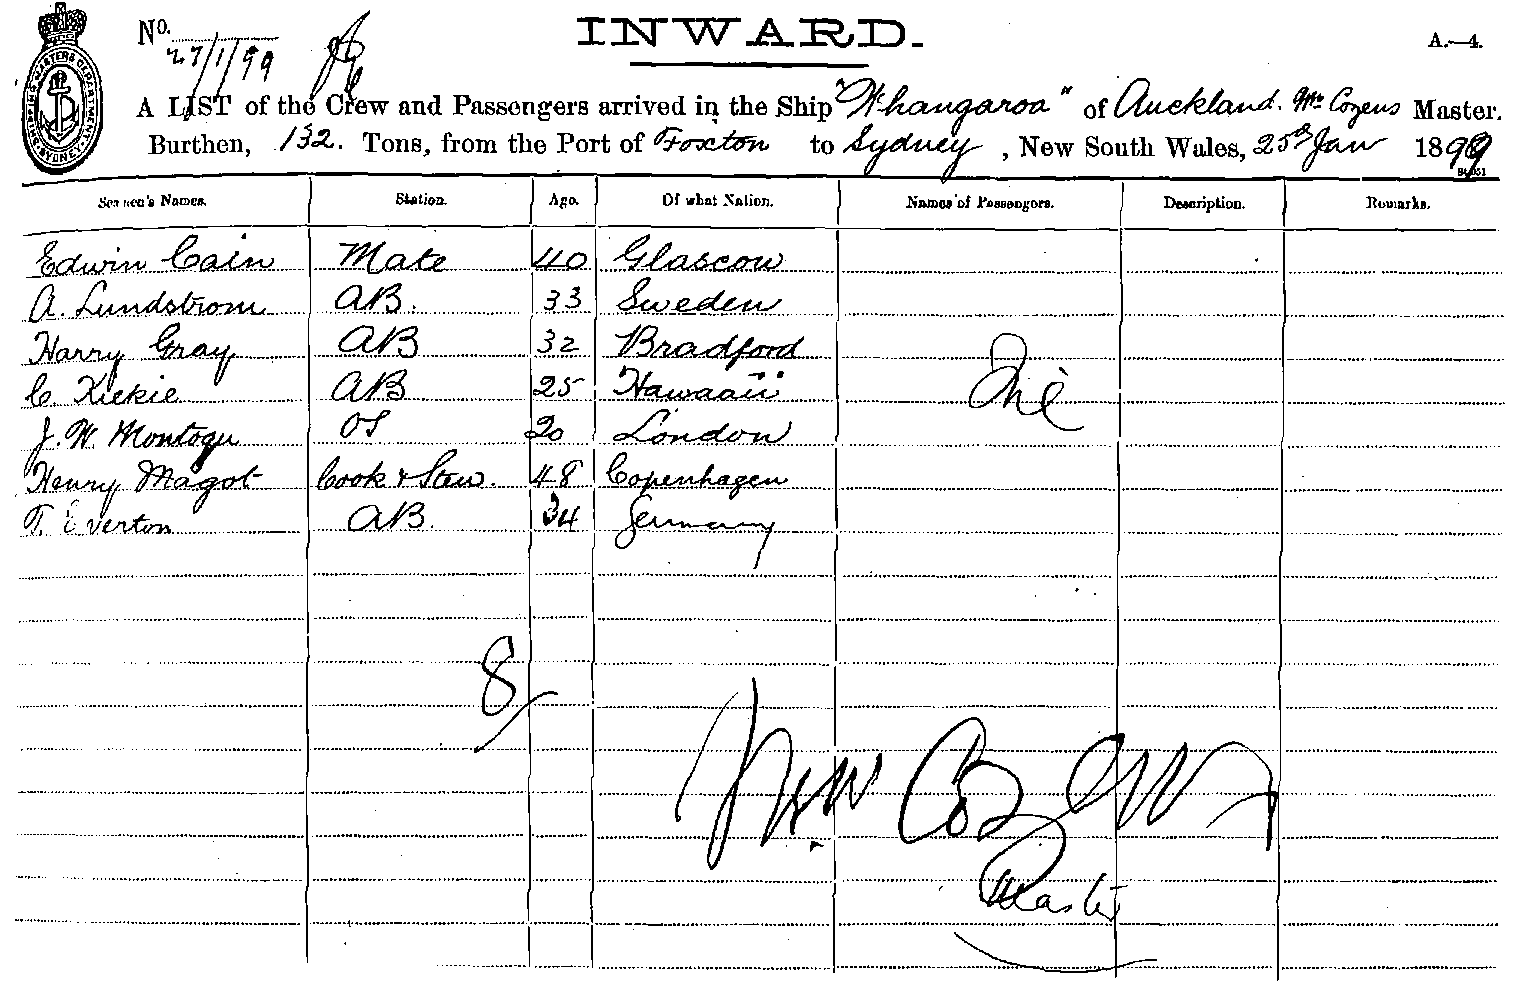 No. 27/1/99
INWARD.
A.—4.
A LIST of the Crew and Passengers arrived in the Ship "Whangaroa" of Auckland. Mr Cozens Master.
Burthen, 132. Tons, from the Port of Foxton to Sydney, New South Wales, 25th Jan 1899
Seamen's Names. Station. Age. Of what Nation. Names of Passengers. Description. Remarks.
Edwin Cain Mate 40 Glascow
A. Lundstrom AB. 33 Sweden
Harry Gray AB 32 Bradford
C. Kiekie AB 25 Hawaaii
J. W. Montogu OS 20 London
Henry Magot Cook & Stew. 48 Copenhagen
T. Everton AB. 34 Germany
8
Cozens
Master
SHIPPING MASTERS DEPARTMENT SYDNEY